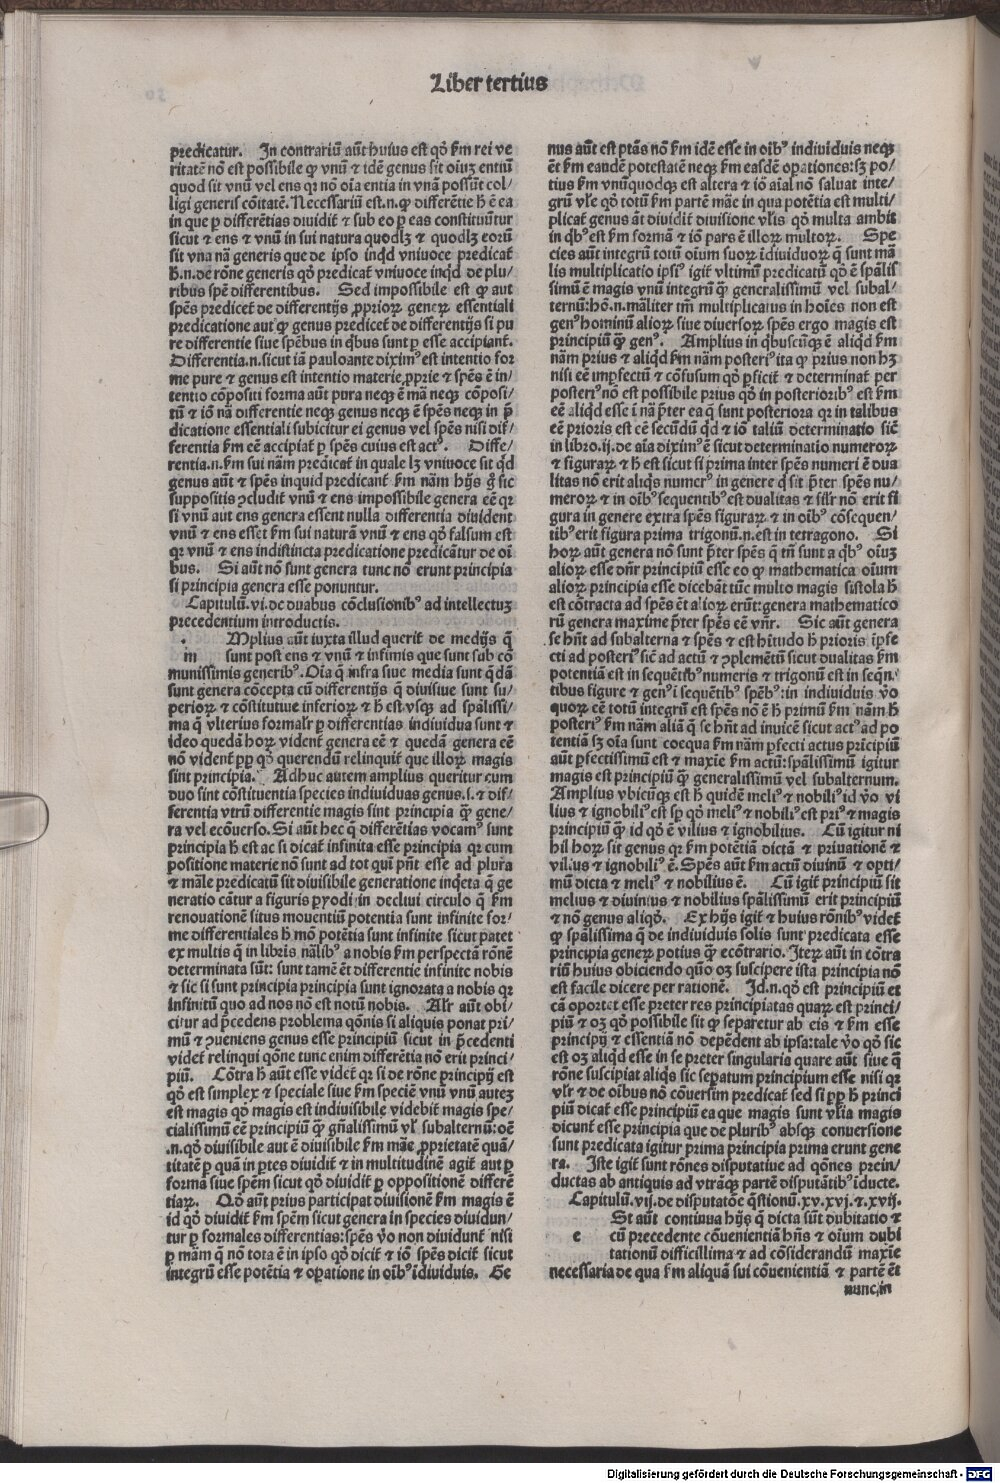 Liber tertius
predicatur. In contrariũ aũt huius est qđ ẜm rei ve
ritatẽ nõ est possibile ꝙ vnũ ⁊ idẽ genus sit oiuꝫ entiũ
quod sit vnũ vel ens qꝛ nõ oĩa entia in vnã possũt col⸗
ligi generis cõitatẽ. Necessariũ est.n.ꝙ differẽtie h̃ ẽ ea
in que ꝑ differẽtias diuidit̃ ⁊ sub eo ꝑ eas constituũtur
sicut ⁊ ens ⁊ vnũ in sui natura quodlꝫ ⁊ quodlꝫ eorũ
sit vna nã generis que de ipso inq̃d vniuoce predicat̃
h̃.n.de rõne generis qđ predicat̃ vniuoce inq̃d de plu⸗
ribus spẽ differentibus. Sed impossibile est ꝙ aut
spẽs predicet̃ de differentijs ꝓprioꝝ geneꝝ essentiali
predicatione aut ꝙ genus predicet̃ de differentijs si pu
re differentie siue spẽbus in q̃bus sunt ꝑ esse accipiant̃.
Differentia.n.sicut iã pauloante diximꝰ est intentio for
me pure ⁊ genus est intentio materie ꝓprie ⁊ spẽs ẽ in⸗
tentio cõpositi forma aũt pura neqꝫ ẽ mã neqꝫ cõposi⸗
tũ ⁊ iõ nã differentie neqꝫ genus neqꝫ ẽ spẽs neqꝫ in p̃
dicatione essentiali subicitur ei genus vel spẽs nisi dif⸗
ferentia ẜm eẽ accipiat̃ ꝑ spẽs cuius est actꝰ. Diffe⸗
rentia.n.ẜm sui nãm predicat̃ in quale lꝫ vniuoce sit q̃d
genus aũt ⁊ spẽs inquid predicant̃ ẜm nãm hijs g̃ sic
suppositis ↄcludit̃ vnũ ⁊ ens impossibile genera eẽ qꝛ
si vnũ aut ens genera essent nulla differentia diuident
vnũ ⁊ ens esset ẜm sui naturã vnũ ⁊ ens qđ falsum est
qꝛ vnũ ⁊ ens indistincta predicatione predicãtur de oĩ
bus. Si aũt nõ sunt genera tunc nõ erunt principia
si principia genera esse ponuntur.
Capitulũ.vi.de duabus cõclusionibꝰ ad intellectuꝫ
precedentium introductis.
Mplius aũt iuxta illud querit̃ de medijs q̃
m sunt post ens ⁊ vnũ ⁊ infimis que sunt sub cõ
munissimis generibꝰ. Oĩa q̃ infra siue media sunt q̃dã
sunt genera cõcepta cũ differentijs q̃ diuisiue sunt su⸗
perioꝝ ⁊ cõstitutiue inferioꝝ ⁊ h̃ est vsqꝫ ad spãlissi⸗
ma q̃ vlterius formalr̃ ꝑ differentias indiuidua sunt ⁊
ideo quedã hoꝝ vident̃ genera eẽ ⁊ quedã genera eẽ
nõ vident̃ ꝓp qđ querendũ relinquit̃ que illoꝝ magis
sint principia. Adhuc autem amplius queritur cum
duo sint cõstituentia species indiuiduas genus.s.⁊ dif⸗
ferentia vtrũ differentie magis sint principia q̃ꝫ gene⸗
ra vel ecõuerso. Si aũt hec q̃ differẽtias vocamꝰ sunt
principia h̃ est ac si dicat̃ infinita esse principia qꝛ cum
positione materie nõ sunt ad tot qui pñt esse ad plura
⁊ mãle predicatũ sit diuisibile generatione inq̃eta q̃ ge
neratio cãtur a figuris ꝑxodi in decliui circulo q̃ ẜm
renouationẽ situs mouentiũ potentia sunt infinite for⸗
me differentiales h̃ mõ potẽtia sunt infinite sicut patet
ex multis q̃ in libris nãlibꝰ a nobis ẜm perspectã rõnẽ
determinata sũt: sunt tamẽ ẽt differentie infinite nobis
⁊ sic si sunt principia principia sunt ignorata a nobis qꝛ
infinitũ quo ad nos nõ est notũ nobis. Alr̃ aũt obi⸗
citur ad p̃cedens problema qõnis si aliquis ponat pri⸗
mũ ⁊ ↄueniens genus esse principiũ sicut in p̃cedenti
videt̃ relinqui qõne tunc enim differẽtia nõ erit princi⸗
piũ. Cõtra h̃ aũt esse videt̃ qꝛ si de rõne principij est
qđ est simplex ⁊ speciale siue ẜm speciẽ vnũ vnũ auteꝫ
est magis qđ magis est indiuisibile videbit̃ magis spe⸗
cialissimũ eẽ principiũ q̃ꝫ gñalissimũ vl̃ subalternũ: oẽ
.n.qđ diuisibile aut ẽ diuisibile ẜm mãe ꝓprietatẽ quã⸗
titatẽ ꝑ quã in ꝑtes diuidit̃ ⁊ in multitudinẽ agit̃ aut ꝑ
formã siue spẽm sicut qđ diuidit̃ ꝑ oppositionẽ differẽ
tiaꝝ. Qđ aũt prius participat diuisionẽ ẜm magis ẽ
id qđ diuidit̃ ẜm spẽm sicut genera in species diuidun⸗
tur ꝑ formales differentias: spẽs ṽo non diuidunt̃ nisi
ꝑ mãm q̃ nõ tota ẽ in ipso qđ dicit̃ ⁊ iõ spẽs dicit̃ sicut
integrũ esse potẽtia ⁊ oꝑatione in oĩbꝰ ĩdiuiduis. Ge
nus aũt est ptãs nõ ẜm idẽ esse in oĩbꝰ indiuiduis neqꝫ
ẽt ẜm eandẽ potestatẽ neqꝫ ẜm easdẽ oꝑationes: sꝫ po⸗
tius ẜm vnũquodqꝫ est altera ⁊ iõ aĩal nõ saluat inte⸗
grũ vl̃e qđ totũ ẜm partẽ mãe in qua potẽtia est multi⸗
plicat̃ genus ãt diuidit̃ diuisione vl̃is qđ multa ambit
in q̃bꝰ est ẜm formã ⁊ iõ pars ẽ illoꝝ multoꝝ. Spe
cies aũt integrũ totũ oĩum suoꝝ ĩdiuiduoꝝ q̃ sunt mã
lis multiplicatio ipsiꝰ igit̃ vltimũ predicatũ qđ ẽ spãlis
simũ ẽ magis vnũ integrũ q̃ꝫ generalissimũ vel subal⸗
ternũ: hõ.n.mãliter tm̃ multiplicatus in hoĩes non est
genꝰ hominũ alioꝝ siue diuersoꝝ spẽs ergo magis est
principiũ q̃ꝫ genꝰ. Amplius in q̃buscũqꝫ ẽ aliq̃d ẜm
nãm prius ⁊ aliq̃d ẜm nãm posteriꝰ ita ꝙ prius non hꝫ
nisi eẽ imꝑfectũ ⁊ cõfusum qđ ꝑficit̃ ⁊ determinat̃ per
posteriꝰ nõ est possibile prius qđ in posterioribꝰ est ẜm
eẽ aliq̃d esse ĩ nã p̃ter ea q̃ sunt posteriora qꝛ in talibus
eẽ prioris est cẽ secũdũ q̃d ⁊ iõ taliũ determinatio sic̃
in libro.ij.de aĩa diximꝰ ẽ sicut determinatio numeroꝝ
⁊ figuraꝝ ⁊ h̃ est sicut si prima inter spẽs numeri ẽ dua
litas nõ erit aliq̃s numerꝰ in genere q̃ sit p̃ter spẽs nu⸗
meroꝝ ⁊ in oĩbꝰ sequentibꝰ est dualitas ⁊ silr̃ nõ erit fi
gura in genere extra spẽs figuraꝝ ⁊ in oĩbꝰ cõsequen⸗
tibꝰ erit figura prima trigonũ.n.est in tetragono. Si
hoꝝ aũt genera nõ sunt p̃ter spẽs q̃ tñ sunt a q̃bꝰ oiuꝫ
alioꝝ esse dñr principiũ esse eo ꝙ mathematica oĩum
alioꝝ principia esse dicebãt tũc multo magis sistola h̃
est cõtracta ad spẽs ẽt alioꝝ erũt: genera mathematico
rũ genera maxime p̃ter spẽs eẽ vñr. Sic aũt genera
se hñt ad subalterna ⁊ spẽs ⁊ est hĩtudo h̃ prioris ip̃fe
cti ad posteriꝰ sic̃ ad actũ ⁊ ↄplemẽtũ sicut dualitas ẜm
potentiã est in sequẽtibꝰ numeris ⁊ trigonũ est in seqñ⸗
tibus figure ⁊ genꝰ ĩ sequẽtibꝰ spẽbꝰ: in indiuiduis ṽo
quoꝝ eẽ totũ integrũ est spẽs nõ ẽ h̃ primũ ẜm nãm h̃
posteriꝰ ẜm nãm aliã q̃ se hñt ad inuicẽ sicut actꝰ ad po
tentiã sꝫ oĩa sunt coequa ẜm nãm ꝑfecti actus principiũ
aũt ꝑfectissimũ est ⁊ maxĩe ẜm actũ: spãlissimũ igitur
magis est principiũ q̃ꝫ generalissimũ vel subalternum.
Amplius vbicũqꝫ est h̃ quidẽ meliꝰ ⁊ nobiliꝰ id ṽo vi
lius ⁊ ignobiliꝰ est sp̃ qđ meliꝰ ⁊ nobiliꝰ est priꝰ ⁊ magis
principiũ q̃ꝫ id qđ ẽ vilius ⁊ ignobilius. Cũ igitur ni
hil hoꝝ sit genus qꝛ ẜm potẽtiã dictã ⁊ priuationẽ ⁊
vilius ⁊ ignobiliꝰ ẽ. Spẽs aũt ẜm actũ diuinũ ⁊ opti⸗
mũ dicta ⁊ meliꝰ ⁊ nobilius ẽ. Cũ igit̃ principiũ sit
melius ⁊ diuinius ⁊ nobilius spãlissimũ erit principiũ
⁊ nõ genus aliqđ. Ex hijs igit̃ ⁊ huius rõnibꝰ videt̃
ꝙ spãlissima q̃ de indiuiduis solis sunt predicata esse
principia geneꝝ potius q̃ꝫ ecõtrario. Iteꝝ aũt in cõtra
riũ huius obiciendo quõ oꝫ suscipere ista principia nõ
est facile dicere per rationẽ. Id.n.qđ est principiũ et
cã oportet esse preter res principiatas quaꝝ est princi⸗
piũ ⁊ oꝫ qđ possibile sit ꝙ separetur ab eis ⁊ ẜm esse
principij ⁊ essentiã nõ depẽdent ab ipsa: tale ṽo qđ sic
est oꝫ aliq̃d esse in se preter singularia quare aũt siue q̃
rõne suscipiat aliq̃s sic seꝑatum principium esse nisi qꝛ
vl̃r ⁊ de oĩbus nõ cõuersim predicat̃ sed si ꝓp h̃ princi
piũ dicat̃ esse principiũ ea que magis sunt vl̃ia magis
dicunt̃ esse principia que de pluribꝰ absqꝫ conuersione
sunt predicata igitur prima principia prima erunt gene
ra. Iste igit̃ sunt rõnes disputatiue ad qõnes prein⸗
ductas ab antiquis ad vtrãqꝫ partẽ disputãtibꝰ ĩducte.
Capitulũ.vij.de disputatõe q̃stionũ.xv.xvj.⁊.xvij.
St aũt continua hijs q̃ dicta sũt dubitatio ⁊
e cũ precedente cõuenientiã hñs ⁊ oĩum dubi
tationũ difficillima ⁊ ad cõsiderandũ maxĩe
necessaria de qua ẜm aliquã sui cõuenientiã ⁊ partẽ ẽt
nunc,in
Digitalisierung gefördert durch die Deutsche Forschungsgemeinschaft - DFG